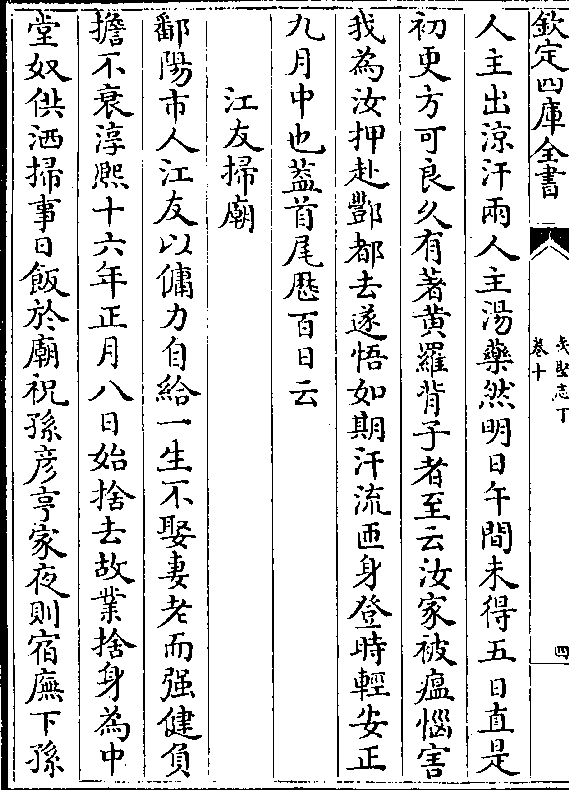 欽定四庫全書
夷堅志丁
卷十
四
人主出涼汗兩人主湯藥然明日午間未得五日直是
初更方可良久有著黄羅背子者至云汝家被瘟惱害
我為汝押赴酆都去遂悟如期汗流匝身登時輕安正
九月中也葢首尾厯百日云
江友掃廟
鄱陽市人江友以傭力自給一生不娶妻老而强健負
擔不衰淳熙十六年正月八日始捨去故業捨身為中
堂奴供洒掃事日飯於廟祝孫彦亨家夜則宿廡下孫